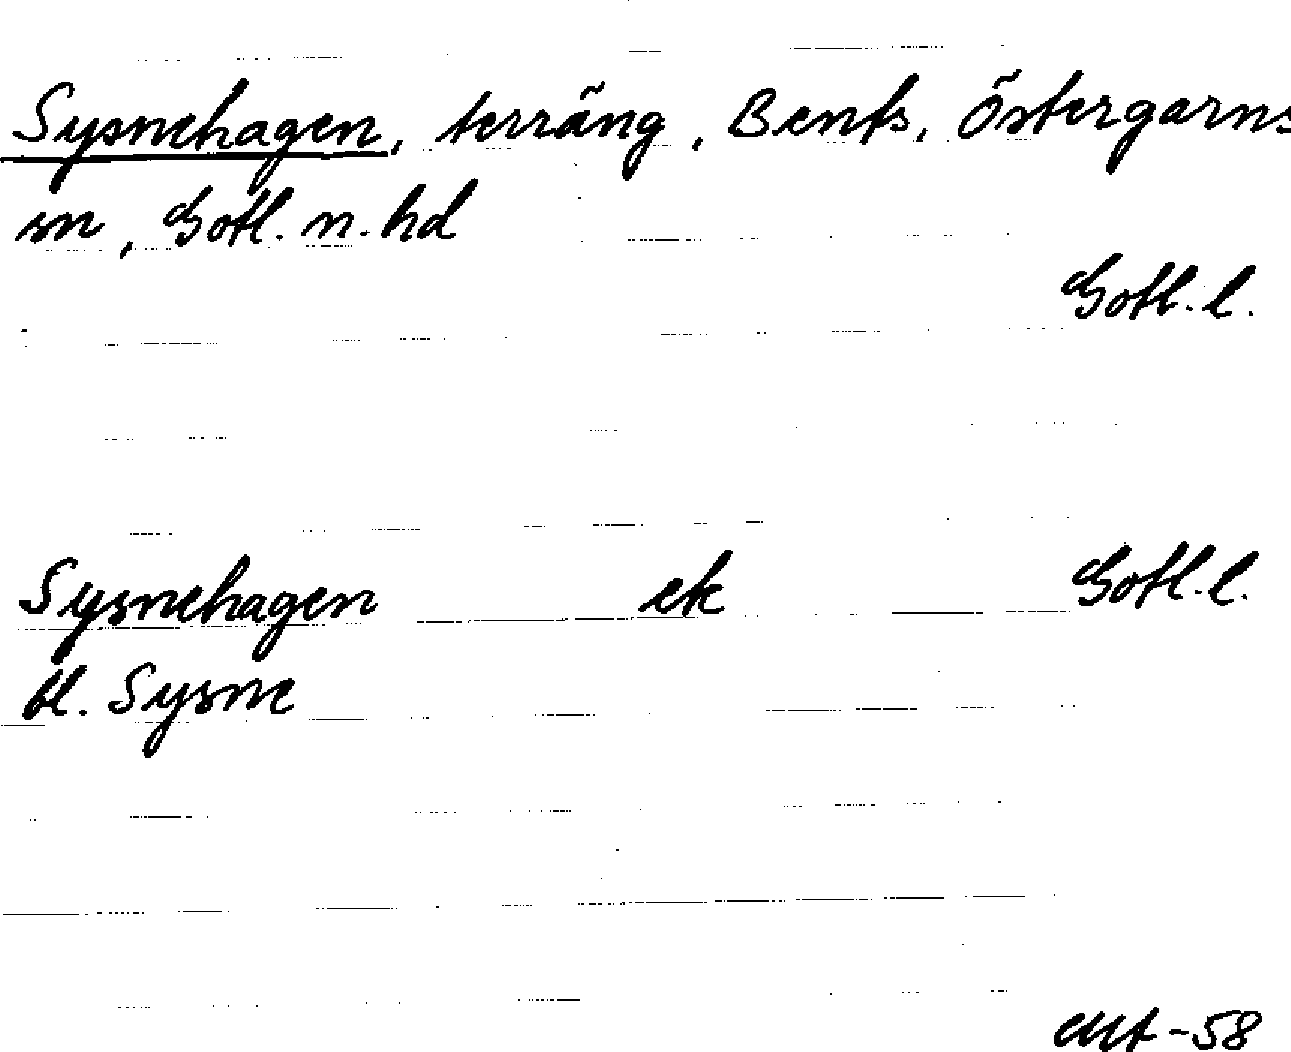 Sysnehagen, terräng, Bents, Östergarns
sn, Gotl. n. hd
Gotl. l.
Sysnehagen ek Gotl. l.
bl. Sysne
-58